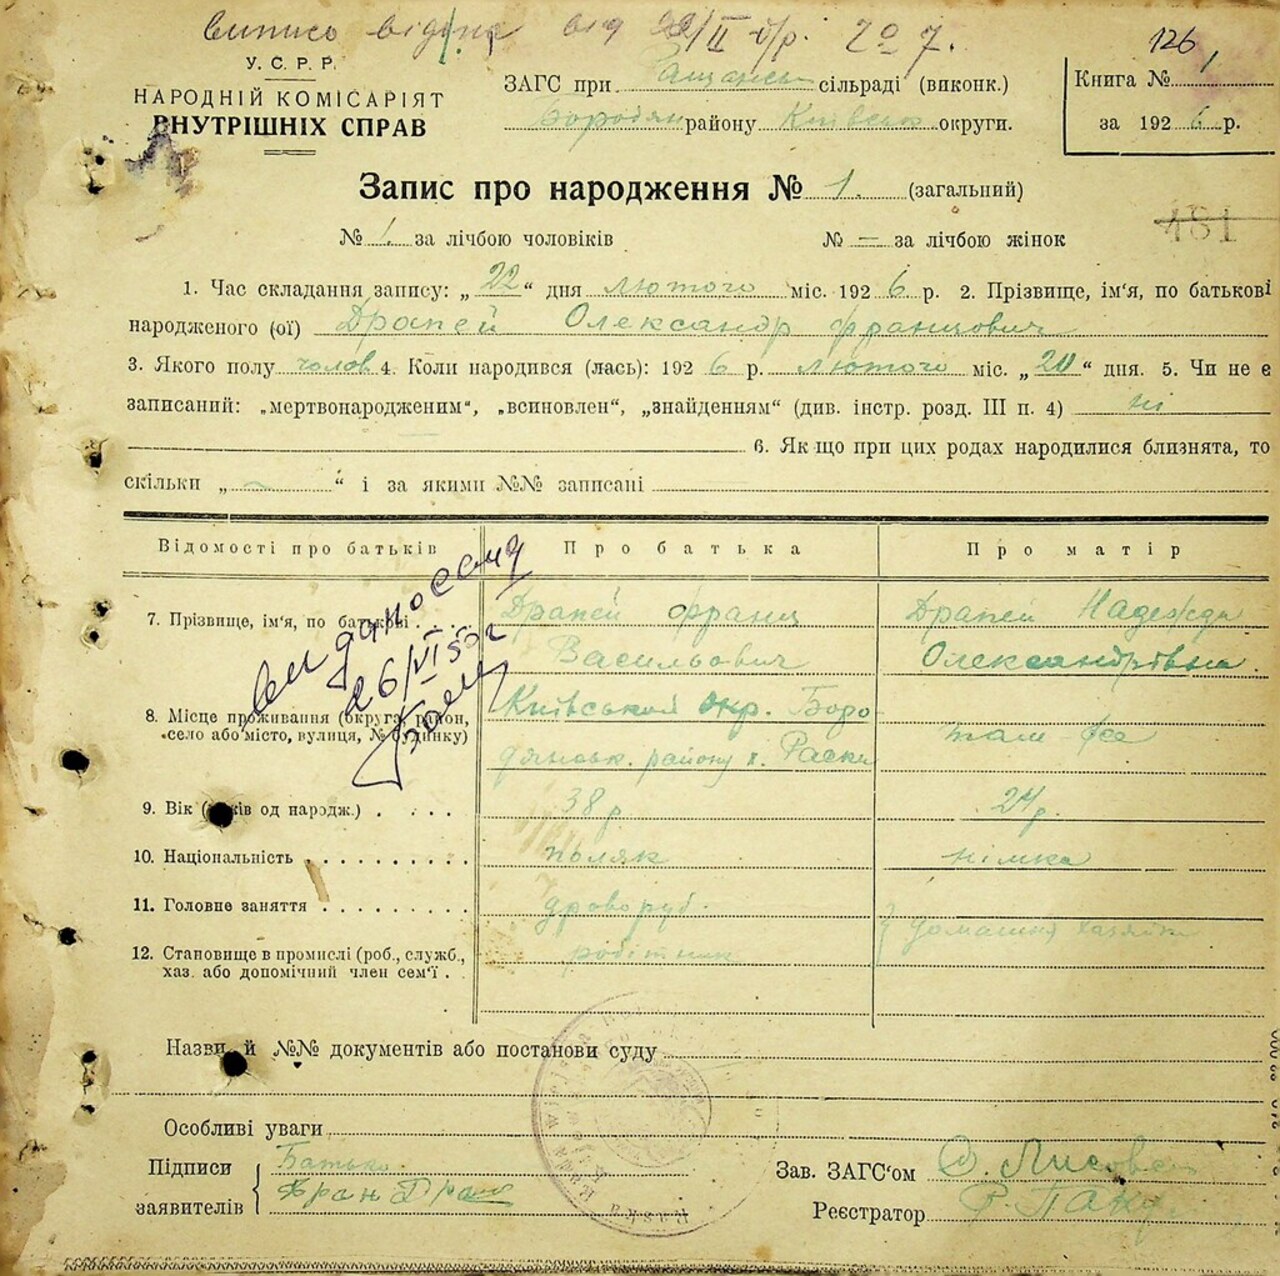 Випись від від 22/II б/р. № 7.
126
У. С. Р. Р.
НАРОДНІЙ КОМІСАРІЯТ
ВНУТРІШНІХ СПРАВ
ЗАГС при сільраді (виконк.)
Бородян району Київськ округи.
Книга № 1
за 1926 р.
Запис про народження № 1. (загальний)
№ 1. за лічбою чоловіків № — за лічбою жінок
481
1. Час складання запису: „22“ дня лютого міс. 1926 р. 2. Прізвище, ім'я, по батькові
народженого (ої) Драпей Олександр Францович
3. Якого полу чолов 4. Коли народився (лась): 1926 р. лютого міс. „20“ дня. 5. Чи не є
записаний: „мертвонародженим“, „всиновлен“, „знайденням“ (див. інстр. розд. III п. 4) ні
6. Як що при цих родах народилися близнята, то
скільки „ “ і за якими №№ записані
Відомості про батьків Про батька Про матір
7. Прізвище, ім'я, по батькові Драпей Франц Васильович Драпей Надежда Олександрівна.
8. Місце проживання (округа, район, село або місто, вулиця, № будинку) Київської окр. Боро дянськ. району х. Раска там же
26/VI 55 г
9. Вік (років од народж.) 38 р. 24 р.
10. Національність поляк німка
11. Головне заняття дроворуб.
12. Становище в промислі (роб., служб., хаз. або допомічний член сем'ї робітник домашня
Назви й №№ документів або постанови суду
Особливі уваги
Підписи заявителів Батько.
Зав. ЗАГС'ом
Реєстратор